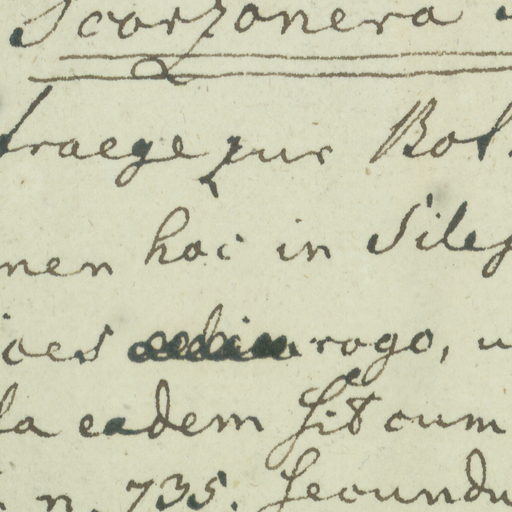 Scorzonera
traege zur Bot
nen hoc in Siles
oes rogo, u
la eadem sit cum
n. 735. Secundu